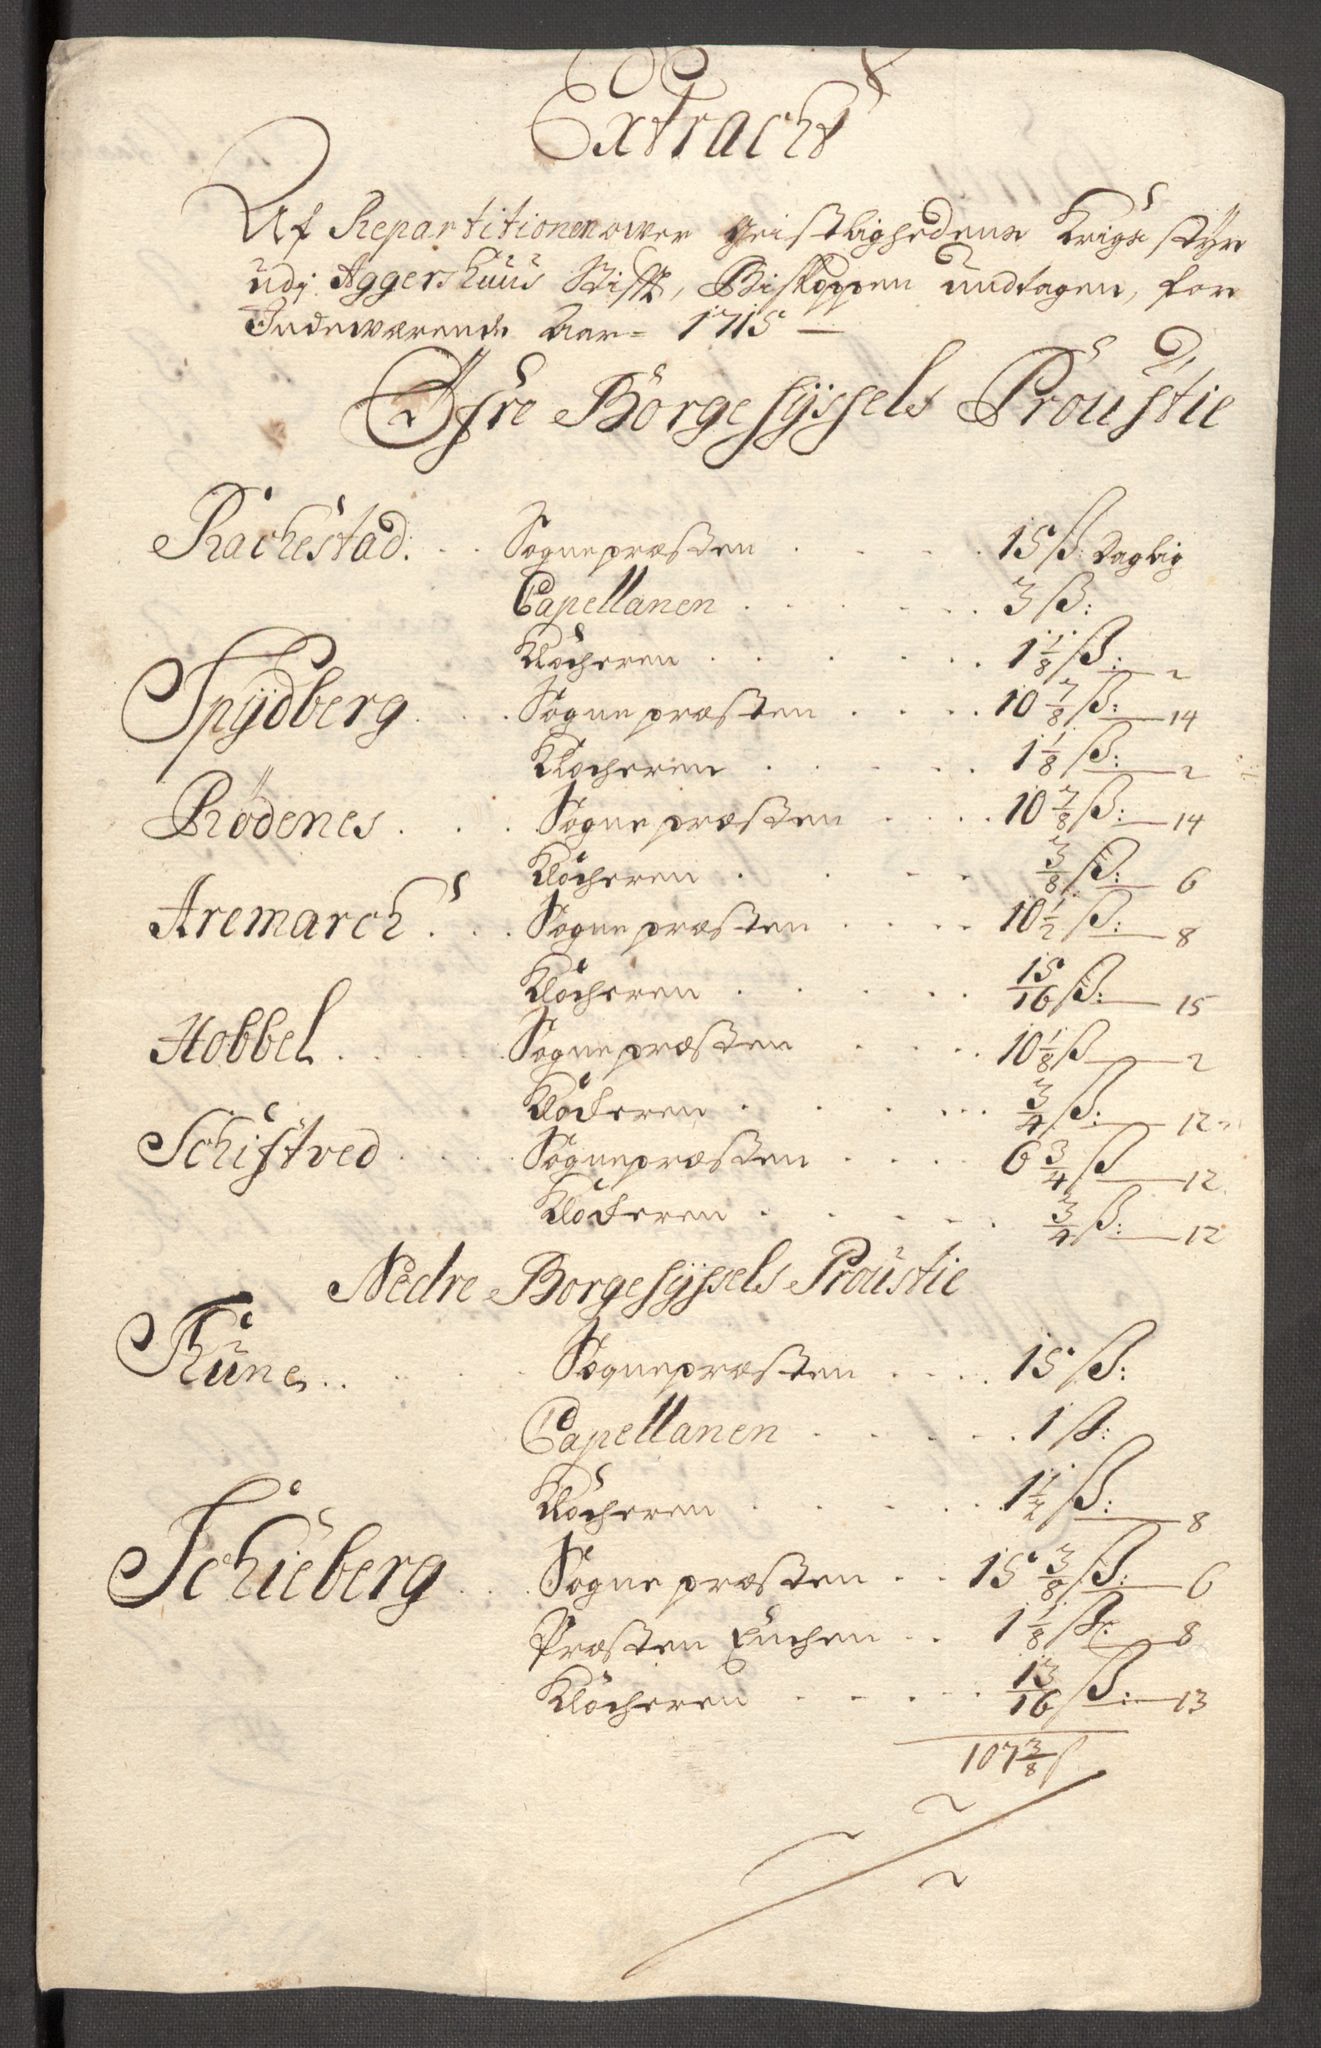 Extracht
Af Repartitionen ower Geistlighedens Krigs styr
udj Aggershuus Stifft, Biskoppen undtagen, for
Indeværende Aar= 1715 —
Øfre Borgesÿssels Proustie
Rachestad: . . Sognepræsten . . . . 15 ß: Daglig
Capellanen . . . . . 3 ß:
Klocheren . . . . . . 1 1/8 ß: — 2
Spÿdberg . . . Sognepræsten . . . . 10 7/8 ß: — 14
Klocheren . . . . . 1 1/8 ß: — 2
Rødenes . . . Sognepræsten . . . . 10 7/8 ß: — 14
Klocheren . . . . . 3/8 ß: — 6
Aremarch . . . Sognepræsten . . . . 10 1/2 ß: — 8
Klocheren . . . . . 15/16 ß: — 15
Hobbel . . . . . Sognepræsten . . . . 10 1/8 ß — 2
Klockeren . . . . . 3/4 ß: — 12
Schiftved . . . . Sognepræsten . . . . 6 3/4 ß — 12
Klockeren . . . . . 3/4 ß: — 12
Nedre Borgesÿssels Proustie
Rune . . . . . Sognepræsten . . . . 15 ß:
Capellanen . . . . . 1 ß:
Klocheren . . . . . 1 1/2 ß: — 8
Schieberg . . . Sognepræsten . . 15 3/8 ß: — 6
Præsten Enchen . . 1 1/8 ß: — 8
Klocheren . . . . . 13/16 ß: — 13
107 3/8 ß